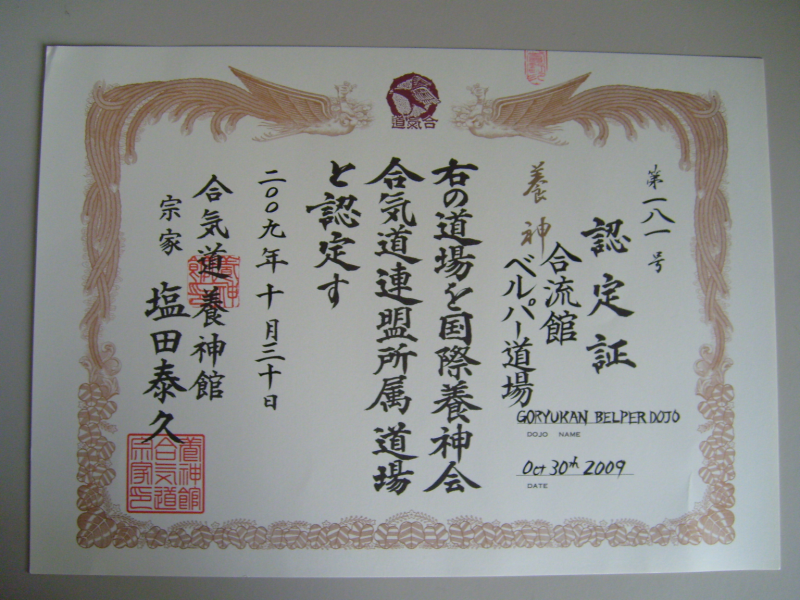 合気道
第一八一号
認定証
養神
合流館
ベルパー道場
GORYUKAN BELPER DOJO
DOJO NAME
Oct 30th 2009
DATE
右の道場を国際養神会
合気道連盟所属道場
と認定す
二〇〇九年十月三十日
合気道養神館
宗家 塩田泰久
養神館
合気道
宗家印